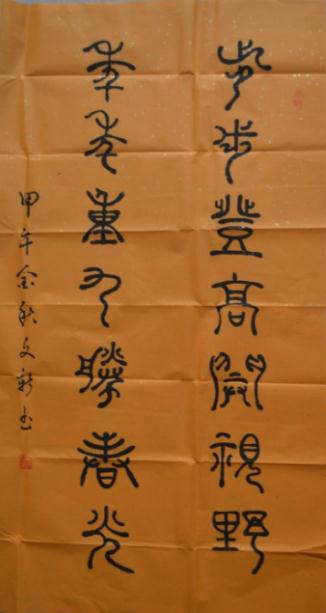 步步登高開視野
年年重九勝春光
甲午金秋文新書